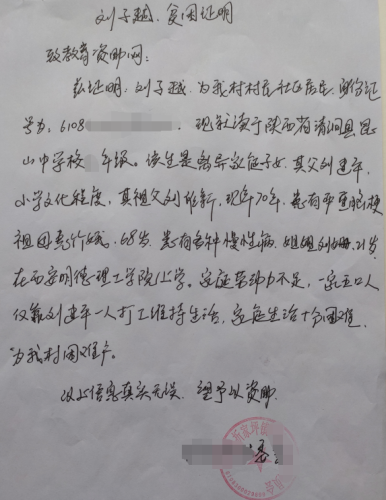 刘子越、贫困证明
致教育资助网：
兹证明：刘子越，为我村村民社区居民，身份证
号为，6108 。现就读于陕西省清涧县昆
山中学校 年级。该生是离异家庭子女，其父刘建平，
小学文化程度，其祖父刘维新，现年70岁，患有严重脑梗
祖母惠竹娥，68岁，患有多种慢性病，姐姐刘 ，21岁，
在西安明德理工学院上学。家庭劳动力不足，一家五口人
仅靠刘建平一人打工维持生活，家庭生活十分困难，
为我村困难户。
以上信息真实无误，望予以资助。